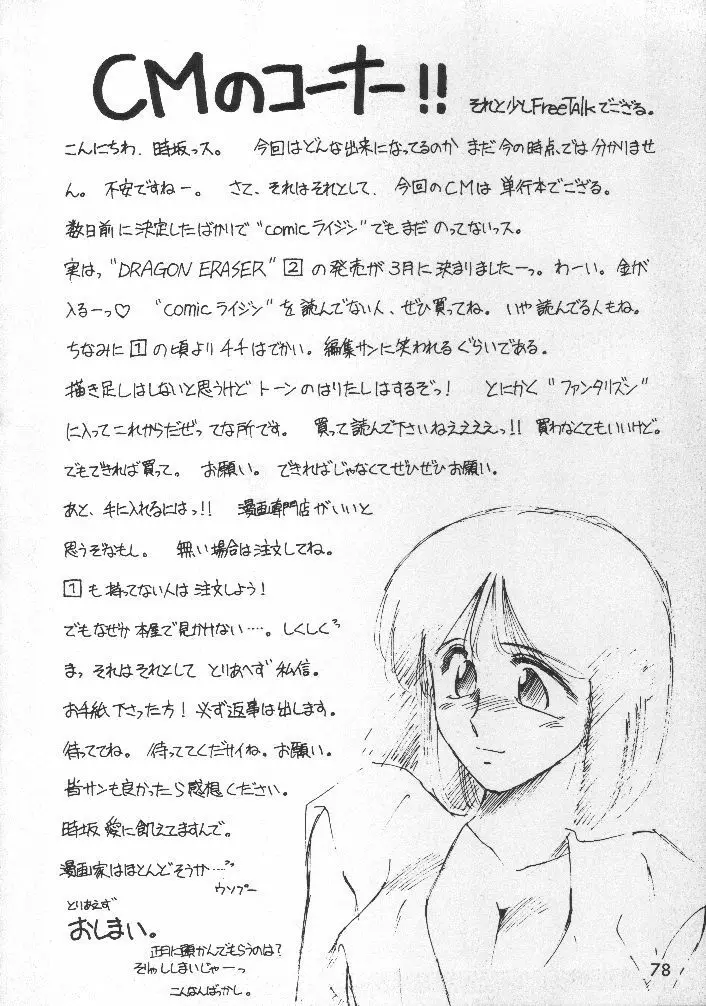 CMのコーナー!! それと少しFreeTalkでござる。
こんにちわ、時坂っス。 今回はどんな出来になってるのか まだ今の時点では分かりませ
ん。 不安ですねー。 さて、それはそれとして、今回のCMは 単行本でござる。
数日前に決定したばかりで“comicライジン”でもまだ のってないっス。
実はっ“DRAGON ERASER”2 の発売が 3月に決まりましたーっ。わーい。金が
入るーっ♡ “comicライジン”を読んでない人、ぜひ買ってね。いや読んでる人もね。
ちなみに 1 の頃より チチはでかい。編集サンに笑われるぐらいである。
描き足しはしないと思うけど トーンのはりたしはするぞっ! とにかく“ファンタリズン”
に入ってこれからだぜってな所です。 買って読んで下さいねええええっ!! 買わなくてもいいけど。
でもできれば買って。 お願い。 できればじゃなくてぜひぜひお願い。
あと、手に入れるにはっ!! 漫画専門店がいいと
思うぞなもし。 無い場合は注文してね。
1 も持ってない人は注文しよう!
でもなぜか 本屋で見かけない…。しくしく
まっ それはそれとして とりあへず 私信。
お手紙下さった方! 必ず返事は出します。
待っててね。 待っててくだサイね。お願い。
皆サンも良かったら感想ください。
時坂 愛に飢えてますんで。
漫画家はほとんどそうか…
ウソプー
とりあえず
おしまい。
正月に頭かんでもらうのは?
そりゃししまいじゃーっ
こんなんばっかし。
78